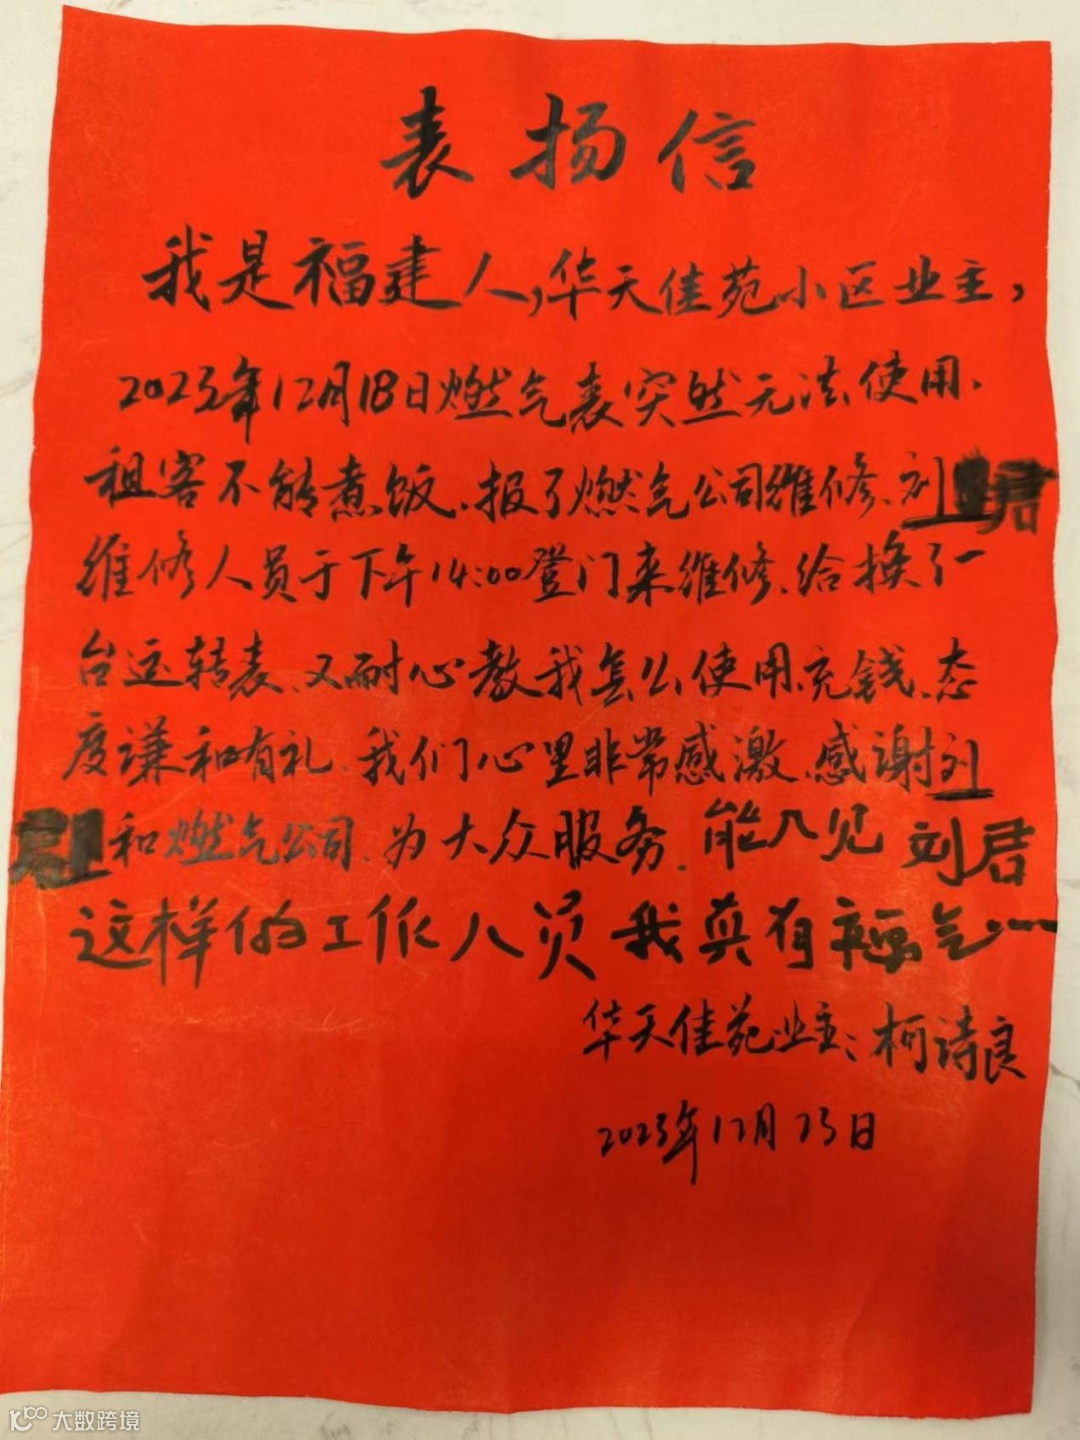 表扬信
我是福建人,华天佳苑小区业主,
2023年12月18日燃气表突然无法使用、
租客不能煮饭、报了燃气公司维修、刘君
维修人员于下午14:00登门来维修、给换了一
台运转表、又耐心教我怎么使用、充钱、态
度谦和有礼、我们心里非常感激、感谢刘
和燃气公司、为大众服务、能入见刘君
这样的工作人员我真有福气…
华天佳苑业主:柯诗良
2023年12月23日
大数跨境